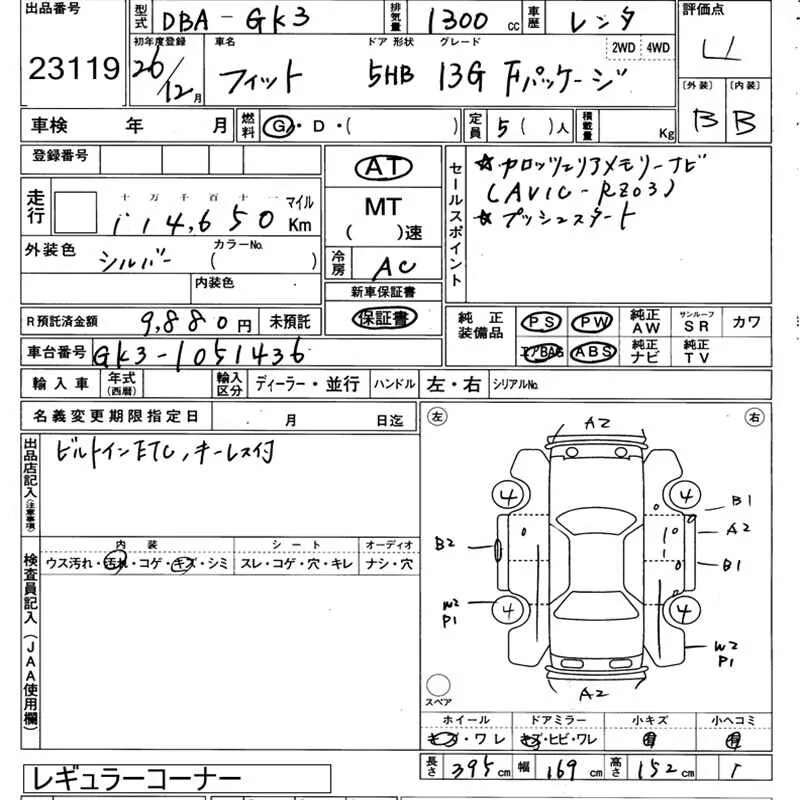 出品番号 型式 DBA-GK3 排気量 1300 cc 車歴 レンタ 評価点
23119 初年度登録 26/12月 車名 フィット ドア 形状 5HB グレード 13G Fパッケージ 2WD 4WD 4
〔外装〕 B 〔内装〕 B
車検 年 月 燃料 G・D・( ) 定員 5 ( )人 積載量 Kg
登録番号
走行 十 万 千 百 十 一 114,650 マイル Km
AT
MT
( )速
セールスポイント
☆カロッツェリアメモリーナビ
(AVIC-RZ03)
☆プッシュスタート
外装色 シルバー カラーNo. ( )
内装色
冷房 AC
新車保証書
保証書
R預託済金額 9,880円 未預託
純正装備品 PS PW 純正AW サンルーフSR カワ
エアBAG ABS 純正ナビ 純正TV
車台番号 GK3-1051436
輸入車 年式(西暦) 輸入区分 ディーラー・並行 ハンドル 左・右 シリアルNo.
名義変更期限指定日 月 日迄
出品店記入(注意事項)
ビルトインETC,キーレス付
検査員記入(JAA使用欄)
内装 シート オーディオ
ウス汚れ・汚れ・コゲ・キズ・シミ スレ・コゲ・穴・キレ ナシ・穴
左 右
A2
4 4
B1
A2
B2
B1
W2
P1
4 4
W2
P1
A2
スペア
ホイール ドアミラー 小キズ 小ヘコミ
キズ・ワレ キズ・ヒビ・ワレ 有 有
長さ 395cm 幅 169cm 高さ 152cm
レギュラーコーナー